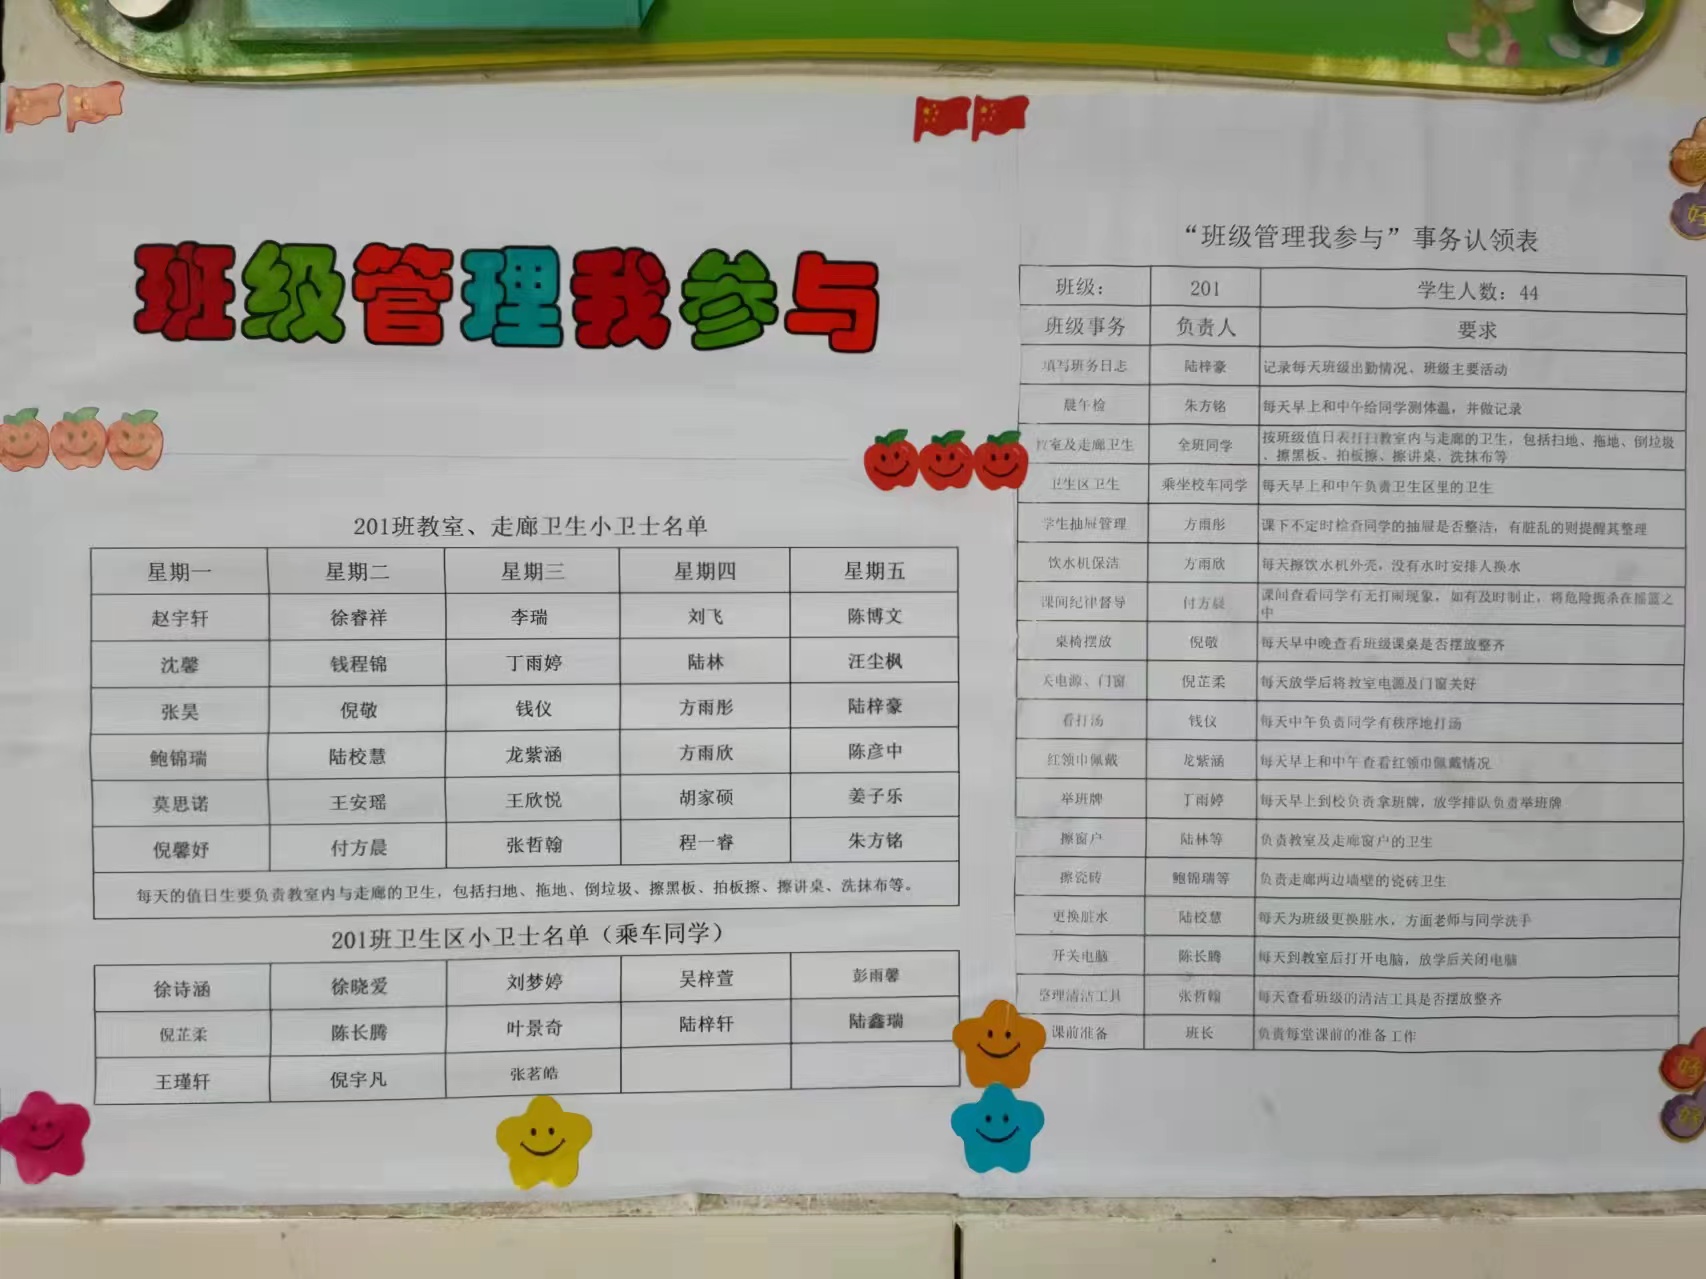 班级管理我参与
201班教室、走廊卫生小卫士名单
星期一 星期二 星期三 星期四 星期五
赵宇轩 徐睿祥 李瑞 刘飞 陈博文
沈馨 钱程锦 丁雨婷 陆林 汪尘枫
张昊 倪敬 钱仪 方雨彤 陆梓豪
鲍锦瑞 陆校慧 龙紫涵 方雨欣 陈彦中
莫思诺 王安瑶 王欣悦 胡家硕 姜子乐
倪馨妤 付方晨 张哲翰 程一睿 朱方铭
每天的值日生要负责教室内与走廊的卫生，包括扫地、拖地、倒垃圾、擦黑板、拍板擦、擦讲桌、洗抹布等。
201班卫生区小卫士名单（乘车同学）
徐诗涵 徐晓爱 刘梦婷 吴梓萱 彭雨馨
倪芷柔 陈长腾 叶景奇 陆梓轩 陆鑫瑞
王瑾轩 倪宇凡 张茗皓
“班级管理我参与”事务认领表
班级： 201 学生人数：44
班级事务 负责人 要求
填写班务日志 陆梓豪 记录每天班级出勤情况、班级主要活动
晨午检 朱方铭 每天早上和中午给同学测体温，并做记录
教室及走廊卫生 全班同学 按班级值日表打扫教室内与走廊的卫生，包括扫地、拖地、倒垃圾
、擦黑板、拍板擦、擦讲桌、洗抹布等
卫生区卫生 乘坐校车同学 每天早上和中午负责卫生区里的卫生
学生抽屉管理 方雨彤 课下不定时检查同学的抽屉是否整洁，有脏乱的则提醒其整理
饮水机保洁 方雨欣 每天擦饮水机外壳，没有水时安排人换水
课间纪律督导 付方晨 课间查看同学有无打闹现象，如有及时制止，将危险扼杀在摇篮之
中
桌椅摆放 倪敬 每天早中晚查看班级课桌是否摆放整齐
关电源、门窗 倪芷柔 每天放学后将教室电源及门窗关好
看打汤 钱仪 每天中午负责同学有秩序地打汤
红领巾佩戴 龙紫涵 每天早上和中午查看红领巾佩戴情况
举班牌 丁雨婷 每天早上到校负责拿班牌，放学排队负责举班牌
擦窗户 陆林等 负责教室及走廊窗户的卫生
擦瓷砖 鲍锦瑞等 负责走廊两边墙壁的瓷砖卫生
更换脏水 陆校慧 每天为班级更换脏水，方面老师与同学洗手
开关电脑 陈长腾 每天到教室后打开电脑，放学后关闭电脑
整理清洁工具 张哲翰 每天查看班级的清洁工具是否摆放整齐
课前准备 班长 负责每堂课前的准备工作
好
好
好